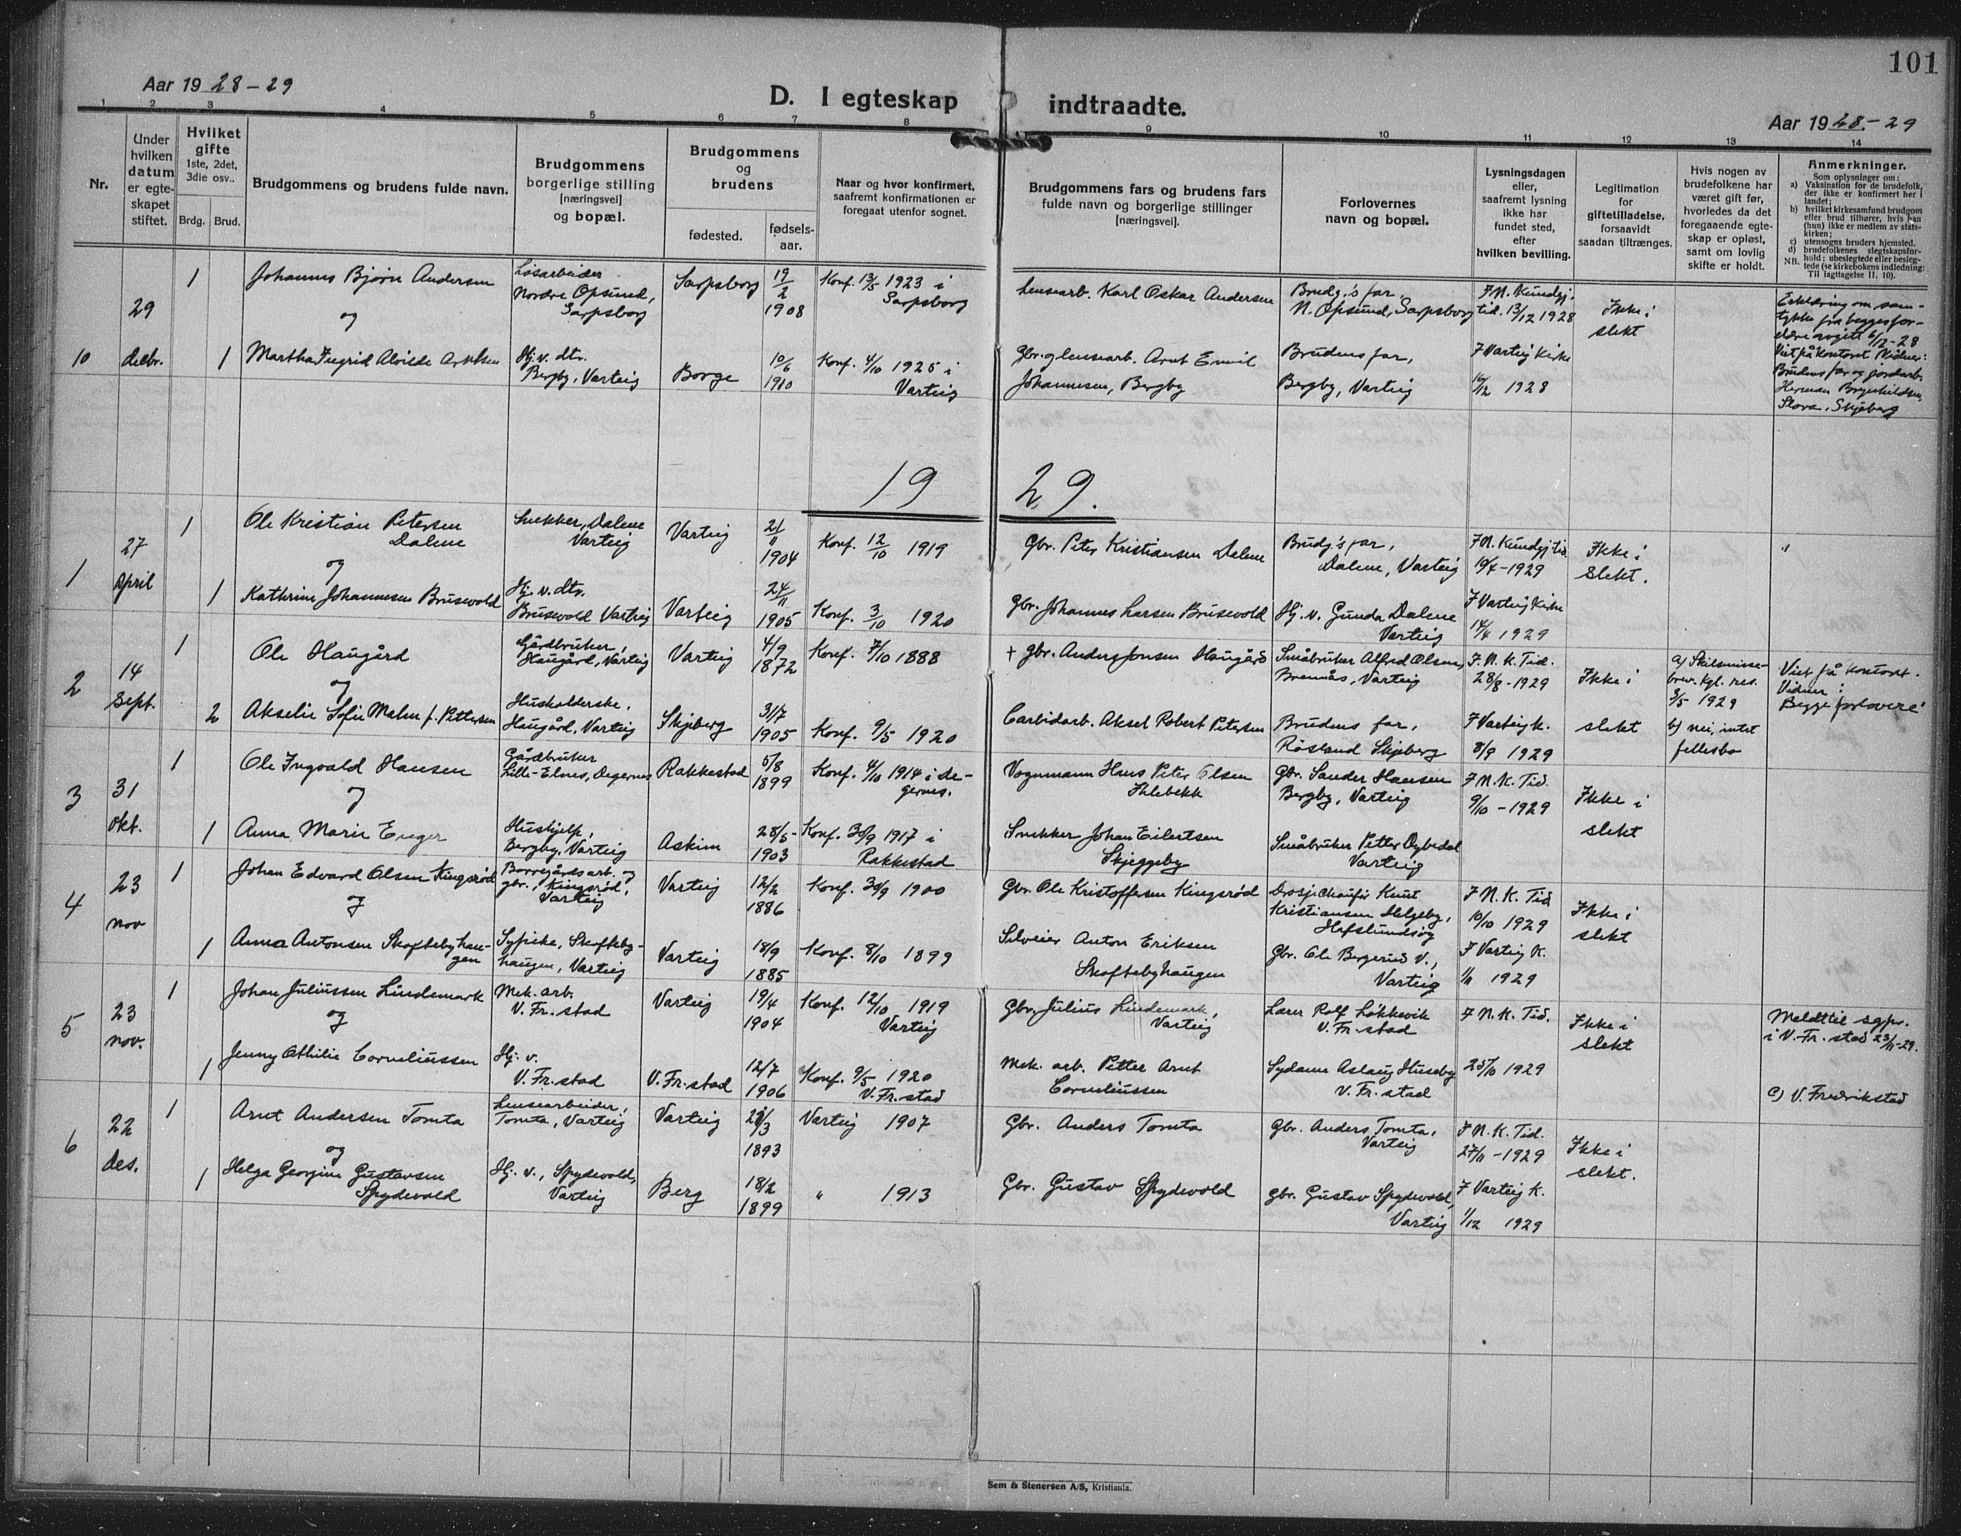 101
Aar 1928-29
D. I egteskap indtraadte.
Aar 1928.-29
1 2 3 4 5 6 7 8 9 10 11 12 13 14
Nr.
Under hvilken datum er egte-skapet stiftet.
Hvilket gifte
1ste, 2det, 3die osv..
Brdg. Brud.
Brudgommens og brudens fulde navn.
Brudgommens borgerlige stilling
[næringsvei]
og bopæl.
Brudgommens og brudens
fødested.
fødsels-aar.
Naar og hvor konfirmert, saafremt konfirmationen er foregaat utenfor sognet.
Brudgommens fars og brudens fars fulde navn og borgerlige stillinger
[næringsvei].
Forlovernes navn og bopæl.
Lysningsdagen eller, saafremt lysning ikke har fundet sted, efter hvilken bevilling.
Legitimation for giftetilladelse, forsaavidt saadan tiltrænges.
Hvis nogen av brudefolkene har været gift før, hvorledes da det foregaaende egte-skap er opløst, samt om lovlig skifte er holdt.
Anmerkninger.
Som oplysninger om:
a) Vaksination for de brudefolk, der ikke er konfirmert her i landet;
b) hvilket kirkesamfund brudgom eller brud tilhører, hvis han (hun) ikke er medlem av stats-kirken;
c) utensogns bruders hjemsted.
d) brudefolkenes slegtskapsfor-hold: ubeslegtede eller besleg-tede (se kirkebokens indledning:
NB. Til iagttagelse II, 10).
10
29
debr.
1
Johannes Bjørn Andersen
og
Løsarbeider
Nordre Opsund,
Sarpsborg
Sarpsborg
19/2
1908
Konf. 13/5 1923 i
Sarpsborg
Lensearb. Karl Oskar Andersen
Brudg.'s far
N. Opsund, Sarpsborg
F. N. Kundgj.
tid. 13/12 1928
Ikke i
slekt
Erklæring om sam-
tykke fra begges for-
eldre avgitt 6/12-28
Vist på kontoret. Vidner:
Brudens far og jordarb.
Herman Borgenhildsen,
Slora, Skjeberg
1
Martha Ingrid Alvilde Arntsen
Hj. v. dtr.
Bergby, Varteig
Borge
10/6
1910
Konf. 4/10 1925 i
Varteig
Gbr. og lensearb. Arnt Emil
Johannesen, Bergby
Brudens far,
Bergby, Varteig
F. Varteig Kirke
16/12 1928
19 29.
1
27
April
1
Ole Kristian Petersen
Dalene
og
Snekker, Dalene
Varteig
Varteig
21/11
1904
Konf. 12/10 1919
Gbr. Peter Kristiansen Dalene
Brudg.'s far,
Dalene, Varteig
F. N. Kundgj. tid.
19/4-1929
Ikke i
Slekt.
"
1
Kathrine Johannesen Brusevold
Hj. v. dtr.
Brusevold Varteig
Varteig
24/11
1905
Konf. 3/10 1920
Gbr. Johannes Larsen Brusevold
Hj. v. Gunda Dalene
Varteig
F Varteig Kirke
14/4 1929
2
14
Sept.
1
Ole Haugård
og
Gårdbruker,
Haugård, Varteig
Varteig
4/9
1872
Konf. 7/10 1888
+ Gbr. Anders Jonsen Haugård
Småbruker Alfred Olsen,
Brennås, Varteig
F. N. K. Tid.
28/8-1929
Ikke i
slekt
a) Skilsmisse-
brev. Kgl. res.
3/5 1929
b) nei, intet
fellesbo
Vist på kontoret.
Vidner:
Begge forlovere!
2
Akselie Sofie Malm f. Pettersen
Husholderske,
Haugård, Varteig
Skjeberg
31/7
1905
Konf. 9/5 1920
Carbidarb. Aksel Robert Petersen
Brudens far,
Røsland Skjeberg
F Varteig K.
8/9 1929
3
31
okt.
1
Ole Ingvald Hansen
og
Gårdbruker
Lille-Elnes, Degernes
Rakkestad
5/8
1899
Konf. 4/10 1914 i De-
gernes.
Vognmann Hans Peter Olsen
Holebekk
Gbr. Sander Hansen
Bergby, Varteig
F. N. K. Tid.
9/10-1929
Ikke i
slekt
1
Anna Marie Enger
Hushjelp,
Bergby, Varteig
Askim
28/5-
1903
Konf. 30/9 1917 i
Rakkestad
Snekker Johan Eilertsen
Skjeggeby
Småbruker Petter Dybedal
Varteig
4
23
nov
1
Johan Edvard Olsen Kingsrød
og
Borregårdsarb. og
gbr., Kingsrød,
Varteig
Varteig
12/2
1886
Konf. 30/9 1900
Gbr. Ole Kristoffersen Kingsrød
Drosjechaufør Knut
Kristiansen Helgeby,
Hafslundsøy
F. N. K. Tid
10/10 1929
Ikke i
slekt
1
Anna Antonsen Skoftebyhau-
gen
Sypike, Skofteby-
haugen, Varteig
Varteig
18/9
1885
Konf. 8/10 1899
Anton Eriksen
Skoftebyhaugen
Gbr. Ole Bergerud V.,
Varteig
F Varteig K.
1/11 1929
5
23
nov.
1
Johan Juliussen Lindemark
og
Mek. arb.
V. Fr. stad
Varteig
19/4
1904
Konf. 12/10 1919
Varteig
Gbr. Julius Lindemark,
Varteig
Lærer Rolf Løkkevik
V. Fr. stad
F. N. K. Tid.
Ikke i
slekt
Meldt til sgpr.
i V. Fr. stad 23/11-29.
1
Jenny Othilie Corneliussen
Hj. v.
V. Fr. stad
V. Fr. stad
12/7
1906
Konf. 9/5 1920
V. Fr. stad
Mek. arb. Petter Arnt
Corneliussen
Sydame Aslaug Huseby
V. Fr. stad
25/10 1929
c) V. Fredrikstad
6
22
des.
1
Arnt Andersen Tomta
og
Lensearbeider,
Tomta, Varteig
Varteig
1893
Varteig 1907
Gbr. Anders Tomta
Gbr. Anders Tomta,
Varteig
F. N. K. Tid.
27/11-1929
Ikke i
slekt.
1
Helga Georgine Gustavsen
Spydevold
Hj. v., Spydevold,
Varteig
Berg
18/2
1899
" 1913
Gbr. Gustav Spydevold
Gbr. Gustav Spydevold,
Varteig
F Varteig K.
1/12 1929
Sem & Stenersen A/S, Kristiania.